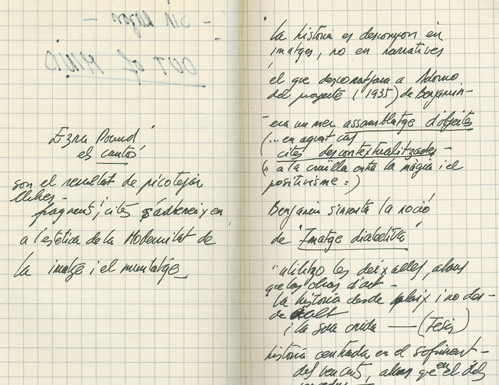 OUT of MIND
Ezra Pound
els cantos
són el resultat de picotejar
llibres
fragments, cites s'adhereixen
a l'estètica de la Modernitat de
la imatge i el muntatge
la història es descompon en
imatges, no en narratives
el que desconcertava a Adorno
del projecte (1935) de Benjamin
era un mer assemblatge d'objectes
(... en aquest cas
cites descontextualitzades -
a la cruïlla entre la màgia i el
positivisme :)
Benjamin s'inventa la noció
de "Imatge dialèctica"
"utilitzo les deixalles, abans
que les obres d'art -
la història desde baix i no des-
de dalt
i la seva crida — (Tesis)
història centrada en el sofriment
dels vençuts, abans que en el dels